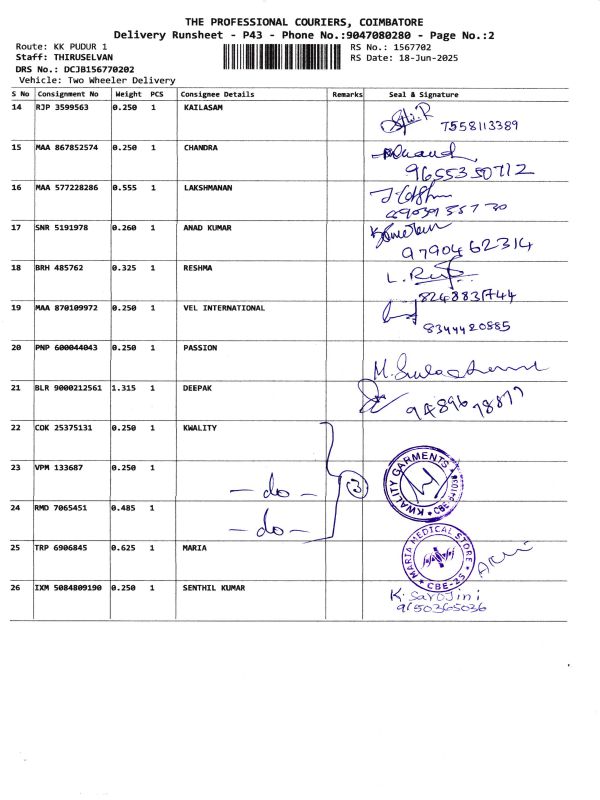 THE PROFESSIONAL COURIERS, COIMBATORE
Delivery Runsheet - P43 - Phone No.:9047080280 - Page No.:2
Route: KK PUDUR 1 RS No.: 1567702
Staff: THIRUSELVAN RS Date: 18-Jun-2025
DRS No.: DCJB156770202
Vehicle: Two Wheeler Delivery
S No Consignment No Weight PCS Consignee Details Remarks Seal & Signature
14 RJP 3599563 0.250 1 KAILASAM
7558113389
15 MAA 867852574 0.250 1 CHANDRA
9655350712
16 MAA 577228286 0.555 1 LAKSHMANAN
17 SNR 5191978 0.260 1 ANAD KUMAR
9790462314
18 BRH 485762 0.325 1 RESHMA
19 MAA 870109972 0.250 1 VEL INTERNATIONAL
8344420885
20 PNP 600044043 0.250 1 PASSION
21 BLR 9000212561 1.315 1 DEEPAK
22 COK 25375131 0.250 1 KWALITY
KWALITY GARMENTS
23 VPM 133687 0.250 1
- do - 3
24 RMD 7065451 0.485 1
- do -
25 TRP 6906845 0.625 1 MARIA
MARIA MEDICAL STORE CBE-25
26 IXM 5084809190 0.250 1 SENTHIL KUMAR
K. Sarojini
9150365036